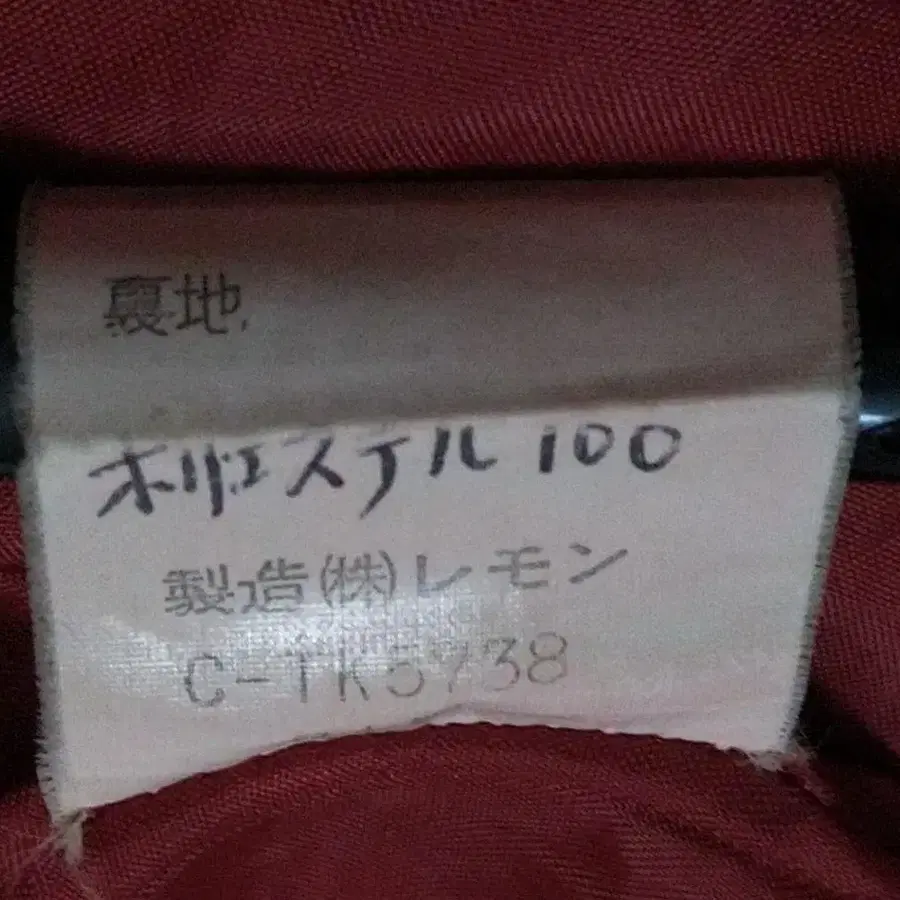 裏地
ポリエステル 100
製造(株)レモン
C-TK5738